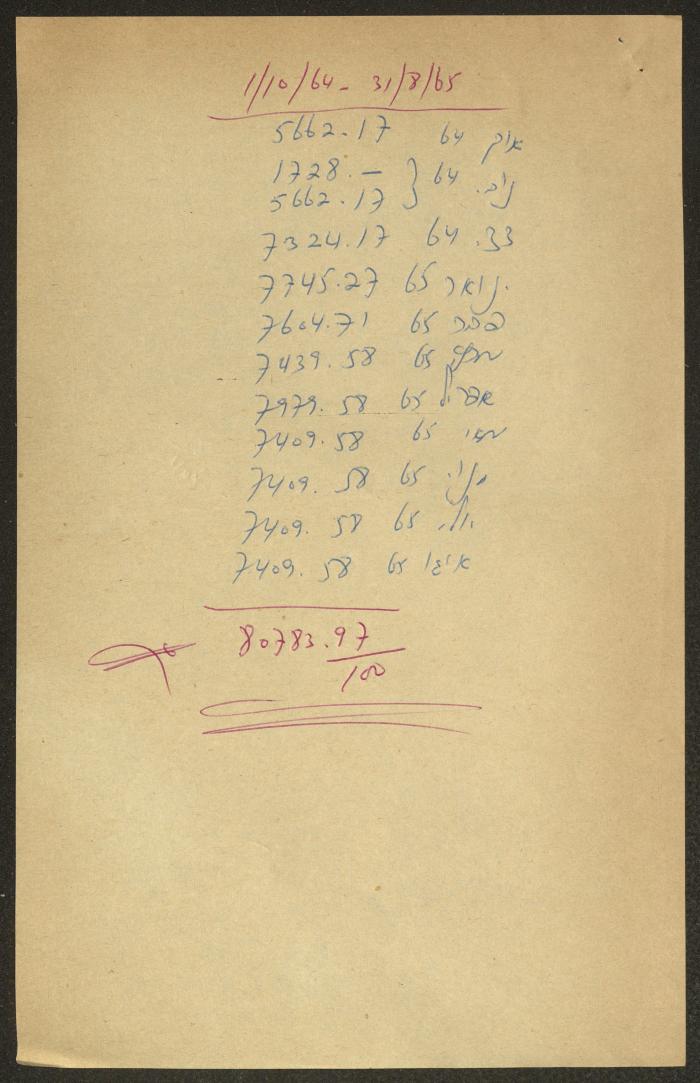 1/10/64 - 31/8/65
אוק 64 5662.17
נוב. 64 { 1728.—
5662.17
דצ. 64 7324.17
ינואר 65 7745.27
פבר 65 7604.71
מרץ 65 7439.58
אפריל 65 7979.58
מאי 65 7409.58
יוני 65 7409.58
יולי 65 7409.58
אוג 65 7409.58
80783.97
100